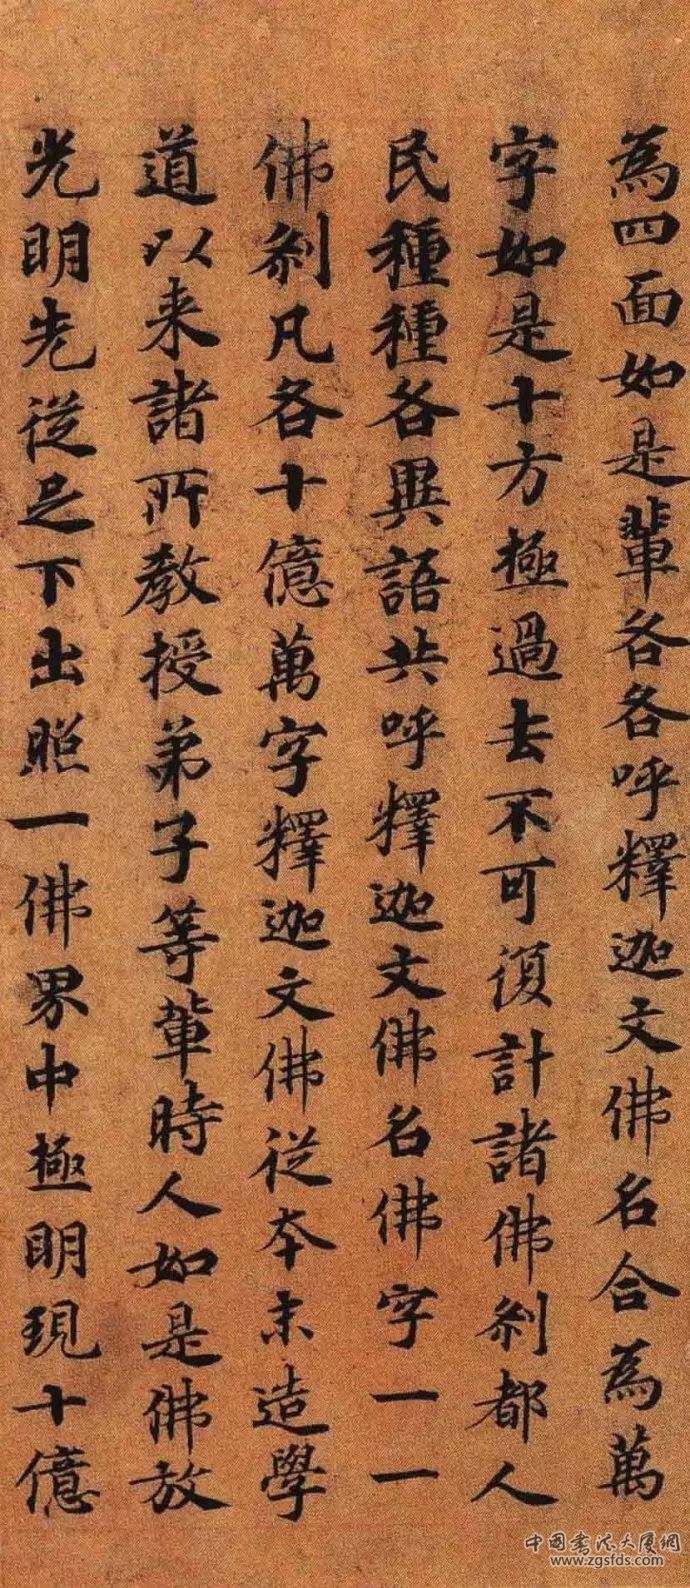 為四面如是輩各各呼釋迦文佛名合為萬
字如是十方極過去不可復計諸佛剎都人
民種種各異語共呼釋迦文佛名佛字一一
佛剎凡各十億萬字釋迦文佛從本未造學
道以来諸所教授弟子等輩時人如是佛放
光明先從足下出照一佛界中極明現十億
中国书法大厦網
www.zgsfds.com